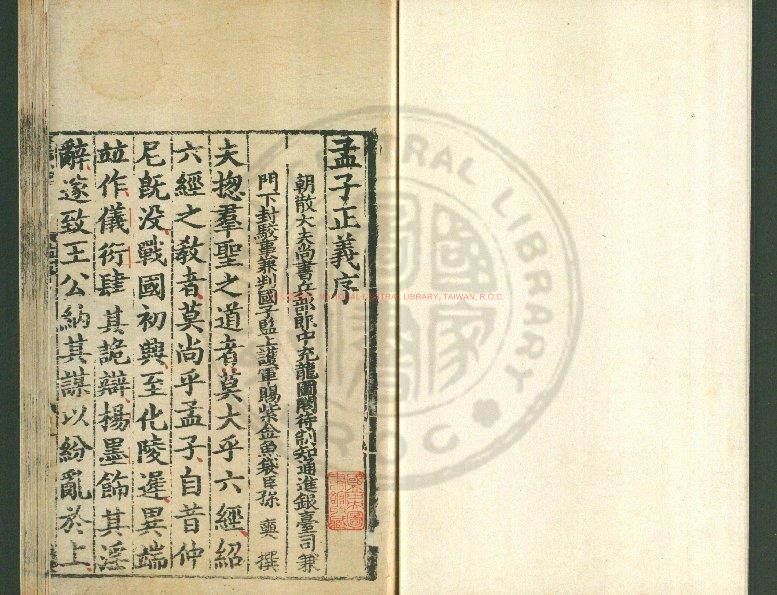 孟子正義序
朝散大夫尚書兵部郎中充龍圖閣待制知通進銀臺司兼
門下封駁事兼判國子監上護軍賜紫金魚袋臣孫奭撰
夫揔羣聖之道者莫大乎六經紹
六經之教者莫尚乎孟子自昔仲
尼旣没戰國初興至化陵遲異端
並作儀衍肆其詭辯楊墨飾其淫
辭遂致王公納其謀以紛亂於上
NATIONAL CENTRAL LIBRARY, TAIWAN, R.O.C.
CENTRAL LIBRARY
R O C